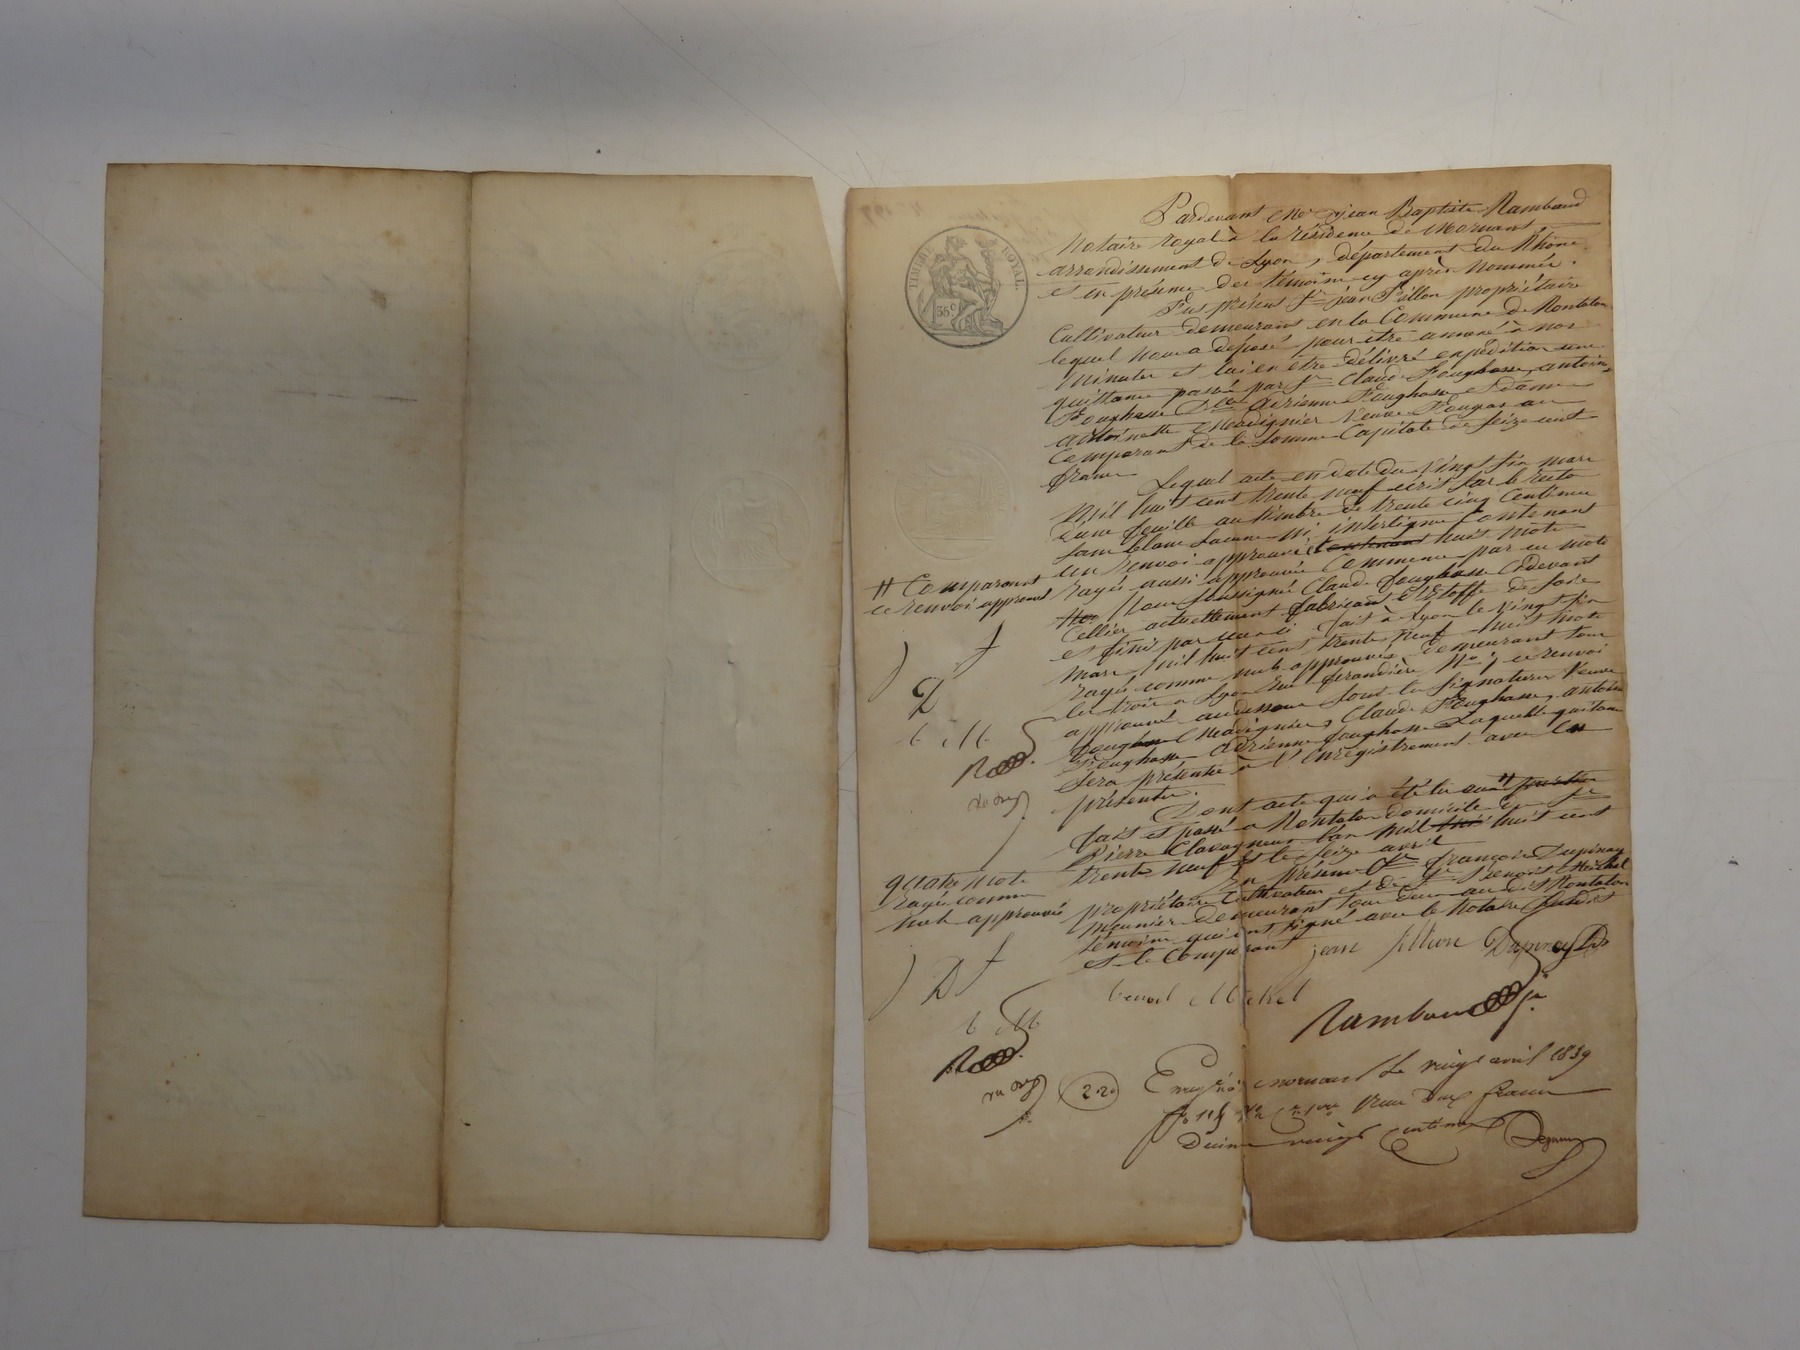 TIMBRE ROYAL.
35c
Pardevant Me Jean Baptiste Rambaud
Notaire royal à la résidence de Mornant
arrondissement de Lyon, département du Rhône
et en présence des témoins cy après nommés.
Fut présent Sr jean Fillon propriétaire
Cultivateur demeurant en la Commune de Rontalon
lequel nous a déposé pour être annexé à nos
Minutes et lui en être délivré expédition une
quittance passée par Sr Claude Foughasse, antoine
Foughasse Dlle Adrienne Foughasse et dame
antoinette Madignier Veuve Fougas au
Comparant de la Somme Capitale de Seize cent
francs
Lequel acte en date du Vingt Six mars
Mil huit cent trente neuf écrit sur le recto
d'une feuille au timbre de trente cinq Centimes
sans blanc lacune ni interligne Contenant
un renvoi approuvé Contenant huit mots
rayés aussi approuvés Commence par ces mots
Nous Soussigné Claude Foughasse Cidevant
Cellier actuellement fabricant d'Etoffe de Soie
et fini par ceux-ci fait à Lyon le Vingt Six
mars Mil huit cent trente neuf huit mots
rayés comme nuls approuvés demeurant tous
les trois à Lyon Rue ferandière No ce renvoi
approuvé audessous Sont les Signatures Veuve
Foughasse Madignier, Claude Foughasse, antoine
Foughasse Adrienne Foughasse Laquelle quittance
Sera présentée à l'Enregistrement avec les
présentes.
Dont acte qui a été lu au
fait et passé à Rontalon domicile du Sr
Pierre Clavagneux l'an Mil huit cent
trente neuf et le Seize avril
En présence de Sr françois Dupinay
propriétaire Cultivateur et de Sr Benoit Michel
Meunier demeurant tous deux au dit Rontalon
témoins qui ont signé avec le Notaire Susdit
et le Comparant
jean fillion Dupinay
benoit Michel
Rambaud
# Comparant
ce renvoi approuvé
J f
D
b M
R
quatre mots
rayés comme
nuls approuvés
J f
D
b M
R
2 20
Enregistré à mornant le vingt avril 1839
Reçu deux francs
Decime vingt Centimes